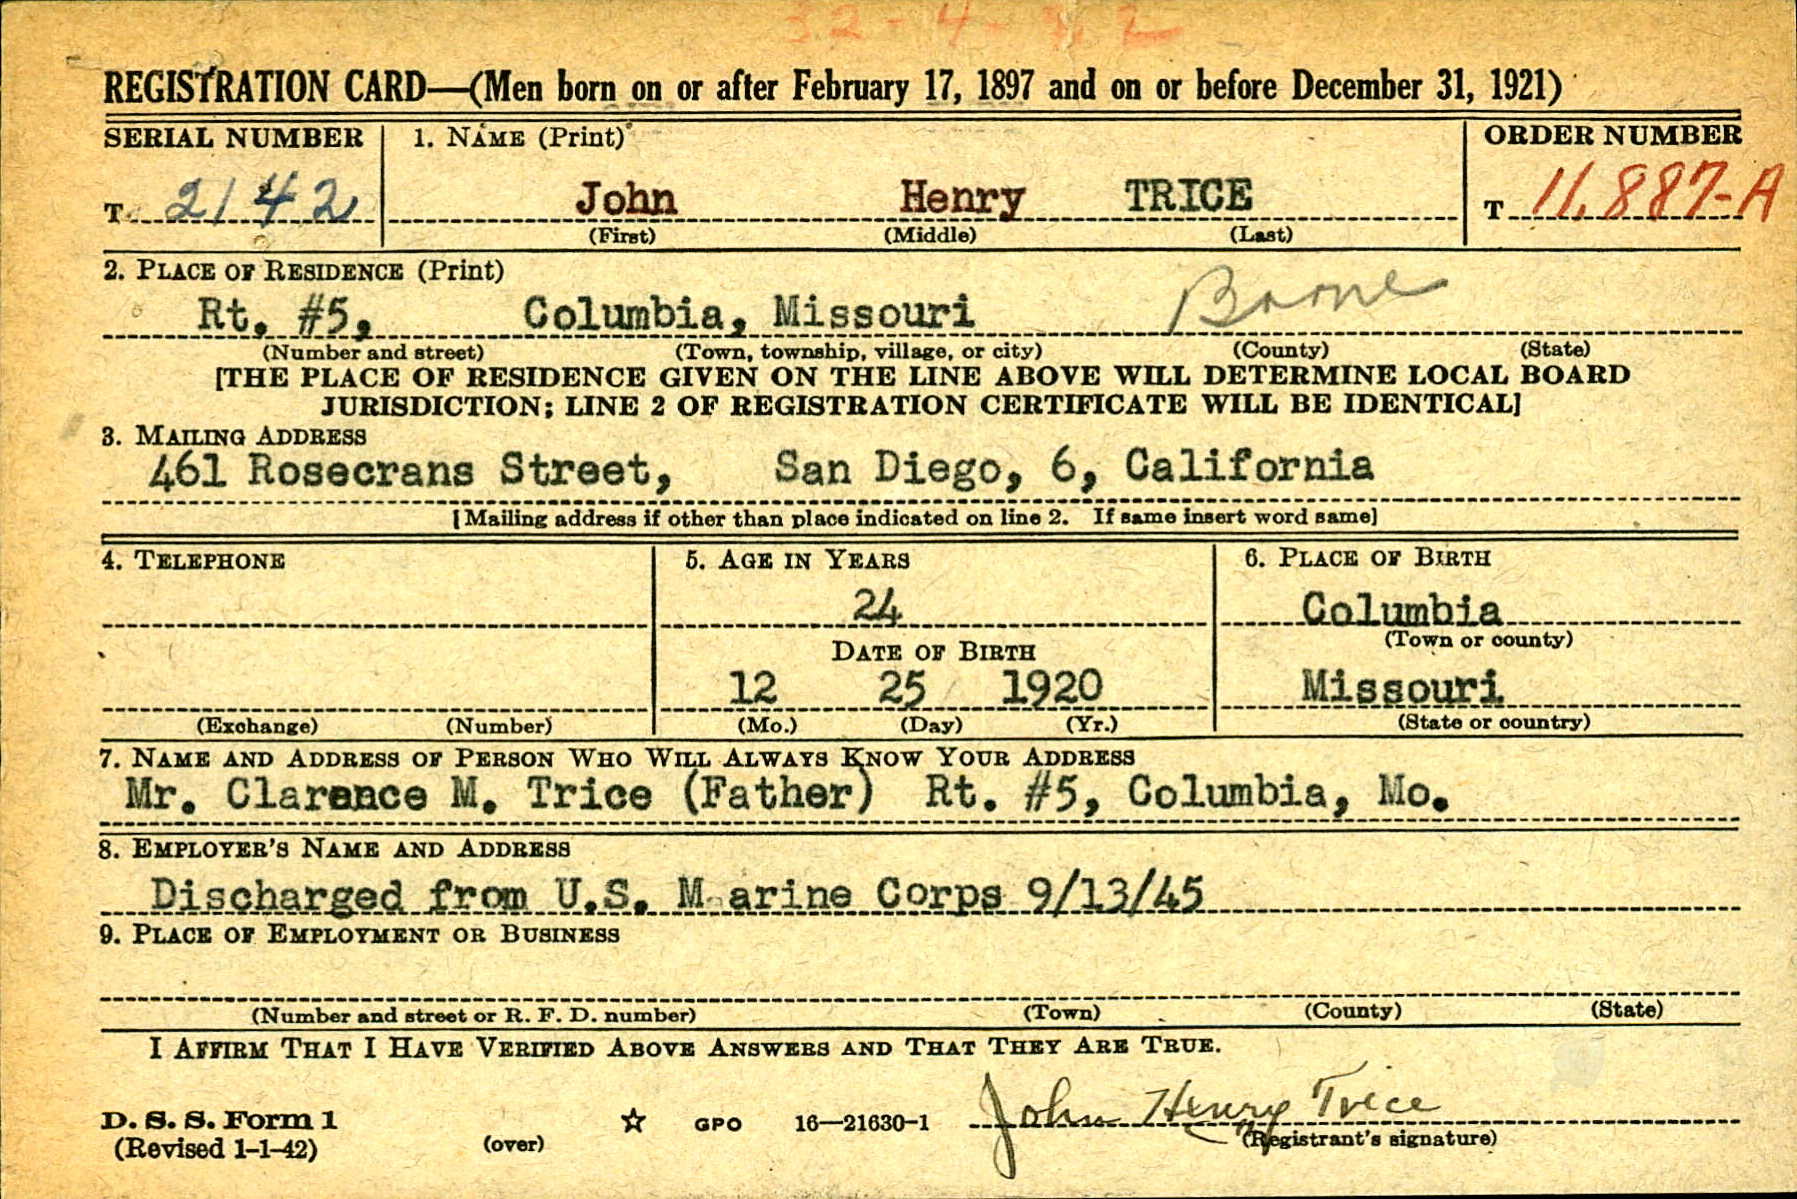 REGISTRATION CARD—(Men born on or after February 17, 1897 and on or before December 31, 1921)
SERIAL NUMBER 1. NAME (Print) ORDER NUMBER
T 2142 John Henry TRICE T 11,887-A
(First) (Middle) (Last)
2. PLACE OF RESIDENCE (Print)
Rt. #5, Columbia, Missouri Boone
(Number and street) (Town, township, village, or city) (County) (State)
[THE PLACE OF RESIDENCE GIVEN ON THE LINE ABOVE WILL DETERMINE LOCAL BOARD
JURISDICTION; LINE 2 OF REGISTRATION CERTIFICATE WILL BE IDENTICAL]
3. MAILING ADDRESS
461 Rosecrans Street, San Diego, 6, California
[Mailing address if other than place indicated on line 2. If same insert word same]
4. TELEPHONE 5. AGE IN YEARS 6. PLACE OF BIRTH
24 Columbia
DATE OF BIRTH (Town or county)
12 25 1920 Missouri
(Exchange) (Number) (Mo.) (Day) (Yr.) (State or country)
7. NAME AND ADDRESS OF PERSON WHO WILL ALWAYS KNOW YOUR ADDRESS
Mr. Clarence M. Trice (Father) Rt. #5, Columbia, Mo.
8. EMPLOYER'S NAME AND ADDRESS
Discharged from U.S. Marine Corps 9/13/45
9. PLACE OF EMPLOYMENT OR BUSINESS
(Number and street or R. F. D. number) (Town) (County) (State)
I AFFIRM THAT I HAVE VERIFIED ABOVE ANSWERS AND THAT THEY ARE TRUE.
D. S. S. Form 1 GPO 16—21630-1 John Henry Trice
(Revised 1-1-42) (over) (Registrant's signature)